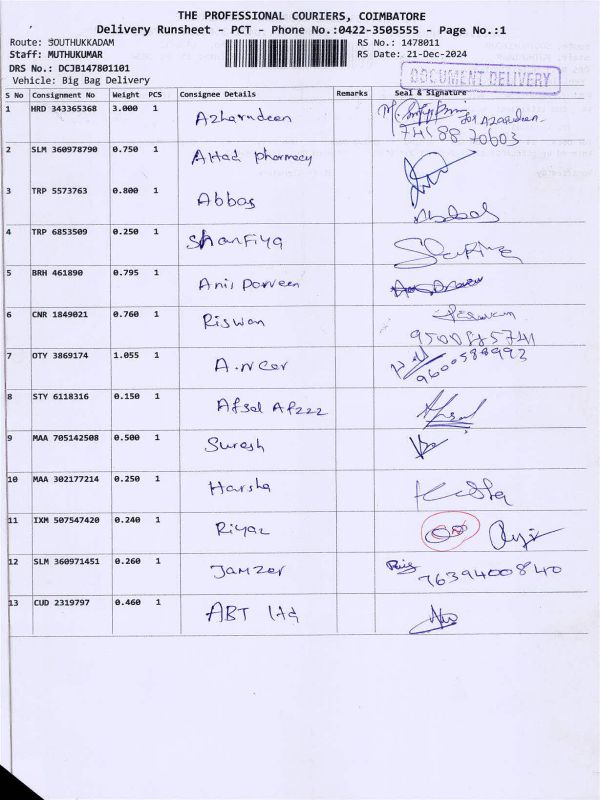 THE PROFESSIONAL COURIERS, COIMBATORE
Delivery Runsheet - PCT - Phone No.:0422-3505555 - Page No.:1
Route: SOUTHUKKADAM RS No.: 1478011
Staff: MUTHUKUMAR RS Date: 21-Dec-2024
DRS No.: DCJB147801101
DOCUMENT DELIVERY
Vehicle: Big Bag Delivery
S No Consignment No Weight PCS Consignee Details Remarks Seal & Signature
1 HRD 343365368 3.000 1 Azharudeen for Azarudeen
7418870603
2 SLM 360978790 0.750 1 AHad pharmacy
3 TRP 5573763 0.800 1 Abbas
4 TRP 6853509 0.250 1 Shanfiya
5 BRH 461890 0.795 1 Anis Parveen
6 CNR 1849021 0.760 1 Riswan
9500885741
7 OTY 3869174 1.055 1 9600588992
8 STY 6118316 0.150 1 Afsal Afzzz Afsal
9 MAA 705142508 0.500 1 Suresh
10 MAA 302177214 0.250 1 Harsha
11 IXM 507547420 0.240 1 Riyaz
12 SLM 360971451 0.260 1 Jamzer 7639400840
13 CUD 2319797 0.460 1 ABT ltd